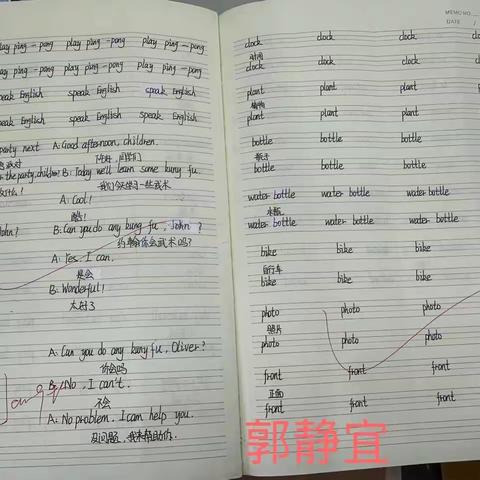 play ping-pong play ping-pong play ping-pong
play ping-pong play ping-pong play ping-pong
speak English speak English speak English
speak English speak English speak English
party next A: Good afternoon, children.
the party, children? B: Today we'll learn some kung fu.
我们今天学习一些武术
A: Cool!
酷!
John? B: Can you do any kung fu, John?
约翰你会武术吗?
A: Yes, I can.
是会
B: Wonderful!
太好了
A: Can you do any kung fu, Oliver?
你会吗
B: No, I can't.
不会
A: No problem. I can help you.
没问题,我来帮助你.
MEMO NO.
DATE /
clock clock clock
时钟
clock clock clock
plant plant plant
植物
plant plant plant
bottle bottle bottle
瓶子
bottle bottle bottle
water bottle water bottle water bottle
水瓶
water bottle water bottle water bottle
bike bike bike
自行车
bike bike bike
photo photo photo
照片
photo photo photo
front front front
正面
front front front
郭静宜